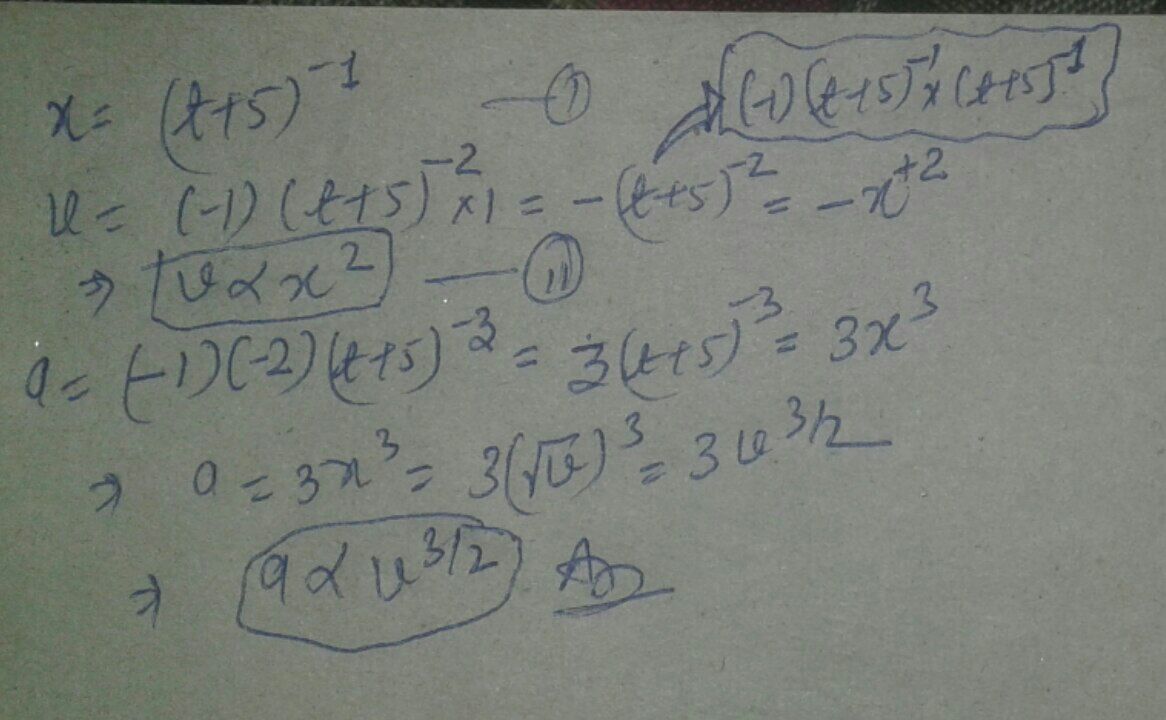 x = (t+5)^-1 — (I)
(-1)(t+5)^-1 × (t+5)^-1
v = (-1)(t+5)^-2 × 1 = -(t+5)^-2 = -x^+2
⇒ v ∝ x^2 — (II)
a = (-1)(-2)(t+5)^-3 = 3(t+5)^-3 = 3x^3
⇒ a = 3x^3 = 3(√v)^3 = 3v^3/2
⇒ a ∝ v^3/2 Ans